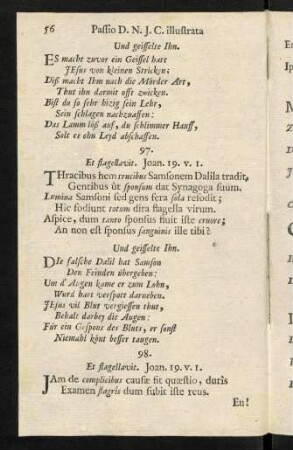 56 Passio D. N. J. C. illustrata
Und geisselte Ihn.
ES macht zuvor ein Geissel hart
JEsus von kleinen Stricken;
Diß macht Ihm nach die Mörder Art,
Thut ihn darmit offt zwicken.
Bist du so sehr hizig sein Lehr,
Sein schlagen nachzuassen:
Das Lamm löß auf, du schlimmer Hauff,
Solt es ohn Leyd abschaffen.
97.
Et flagellavit. Joan. 19. v. 1.
THracibus hem crucibus Samsonem Dalila tradit,
Gentibus ût sponsum dat Synagoga suum.
Lumina Samsoni sed gens fera sola refodit;
Hic fodiunt totum dira flagella virum.
Aspice, dum tanto sponsus fluit iste cruore;
An non est sponsus sanguinis ille tibi?
Und geisselte Ihn.
DIe falsche Dalil hat Samson
Den Feinden übergeben:
Um d' Augen kame er zum Lohn,
Wurd hart verspott darneben.
JEsus vil Blut vergiessen thut,
Behalt darbey die Augen:
Für ein Gespons des Bluts, er sonst
Niemahl könt besser taugen.
98.
Et flagellavit. Joan. 19. v. 1.
JAm de complicibus causæ fit quæstio, duris
Examen flagris dum subit iste reus.
En!